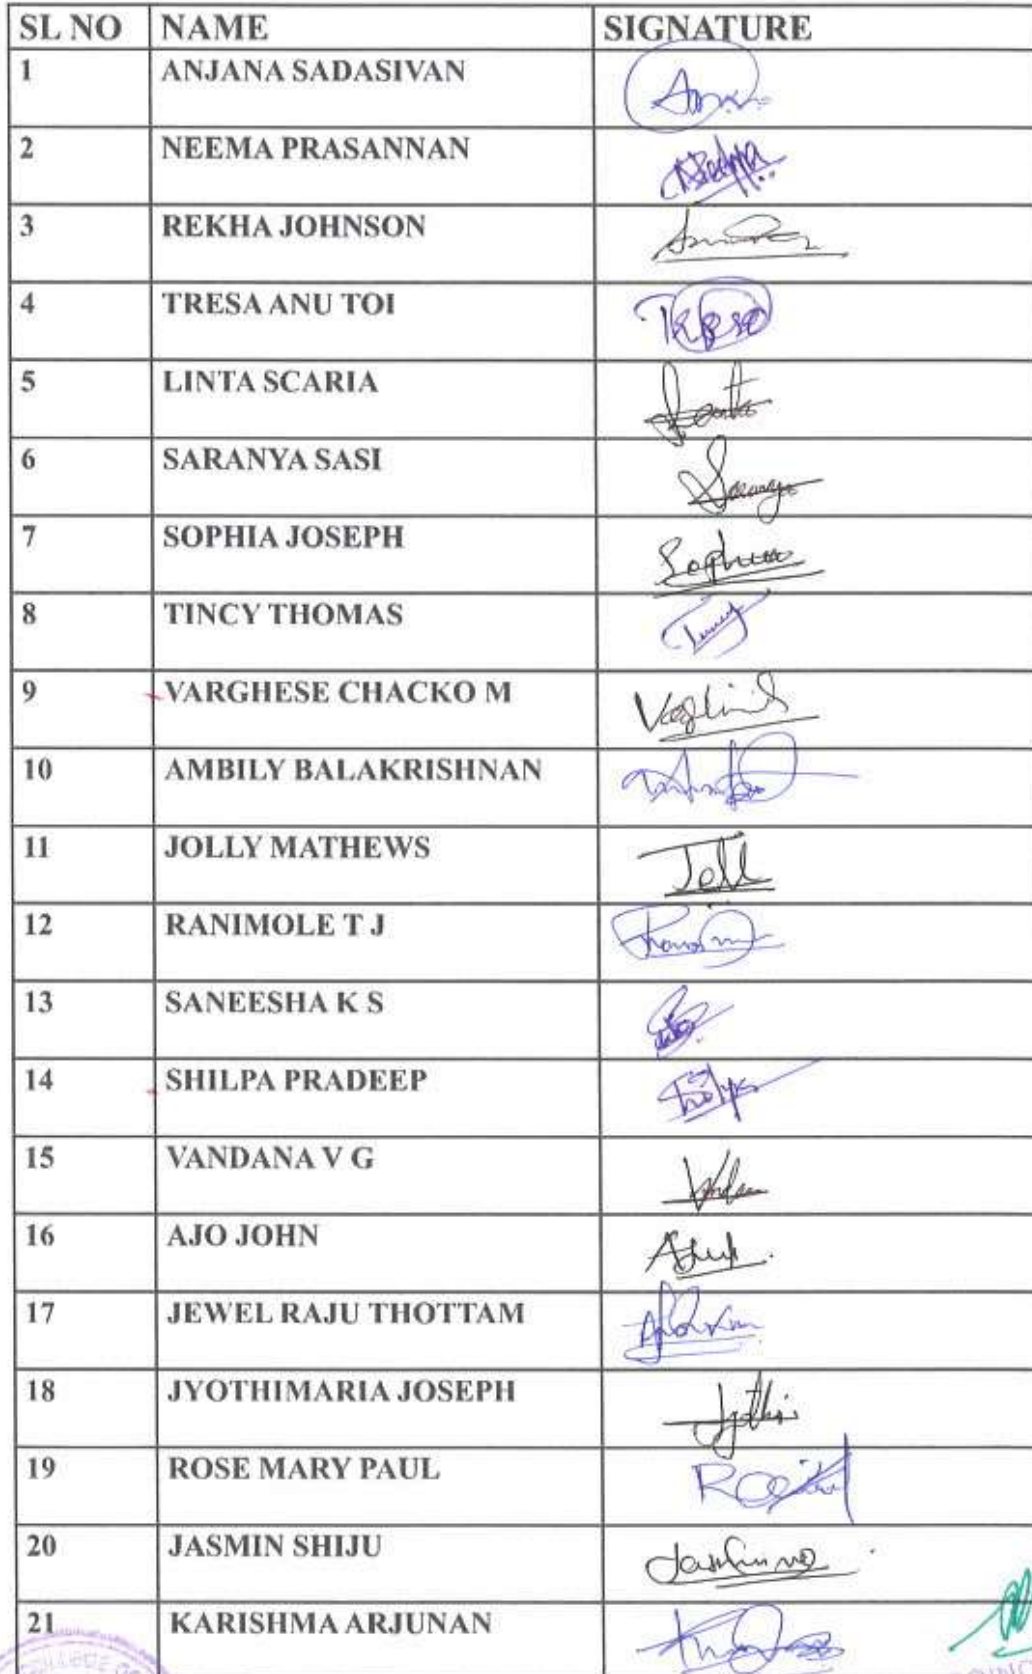 SL NO NAME SIGNATURE
1 ANJANA SADASIVAN
2 NEEMA PRASANNAN
3 REKHA JOHNSON
4 TRESA ANU TOI Tresa
5 LINTA SCARIA
6 SARANYA SASI Saranya
7 SOPHIA JOSEPH Sophia
8 TINCY THOMAS Tincy
9 VARGHESE CHACKO M
10 AMBILY BALAKRISHNAN
11 JOLLY MATHEWS
12 RANIMOLE T J
13 SANEESHA K S
14 SHILPA PRADEEP
15 VANDANA V G
16 AJO JOHN
17 JEWEL RAJU THOTTAM
18 JYOTHIMARIA JOSEPH Jyothi
19 ROSE MARY PAUL
20 JASMIN SHIJU
21 KARISHMA ARJUNAN
COLLEGE